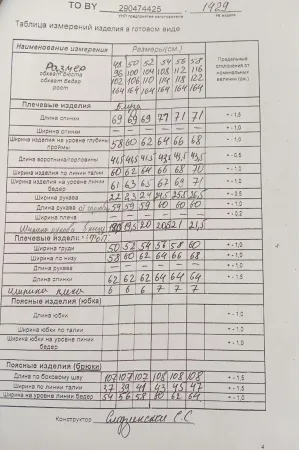 TO BY 290474425 1429
УНП предприятия изготовителя № изделия
Таблица измерений изделия в готовом виде
Наименование измерения Размеры(см.) Предельные отклонения от номинальных величин (см.)
Размер 48 50 52 54 56 58
обхват бюста 96 100 104 108 112 116
обхват бедер 102 106 110 114 118 122
рост 164 164 164 164 164 164
Плечевые изделия Блуза
Длина спинки 69 69 69 71 71 + - 1,5
Ширина спинки + - 1,0
Ширина изделия на уровне глубины проймы 58 60 62 64 66 68 + - 1,0
Длина воротника/горловины 41,5 41,5 41,5 43,5 + - 0,5
Ширина изделия по линии талии 60 62 64 66 68 70 + - 1,0
Ширина изделия на уровне линии бедер 61 63 65 67 69 71 + - 1,0
Ширина рукава + - 0,5
Длина рукава 59 59 59 60 60 60 + - 1,0
Ширина плеча + - 0,2
Ширина рукава внизу 20 21 21,5
Плечевые изделия
Ширина груди 50 52 54 56 58 60 + - 1,0
Ширина по низу 58 60 62 64 66 68 + - 1,0
Длина рукава + - 1,0
Длина спинки 62 62 62 64 64 64 + - 1,5
Ширина плеча 6 6 6 7 7 7
Поясные изделия (юбка)
Длина юбки + - 1,0
Ширина юбки по талии + - 1,0
Ширина юбки на уровне линии бедер + - 1,0
Поясные изделия (брюки)
Длина по боковому шву 107 107 107 108 108 108 + - 1,5
Ширина по линии талии 37 39 41 43 45 47 + - 1,0
Ширина на уровне линии бедер 54 56 58 60 62 64 + - 1,0
Конструктор С.С
4